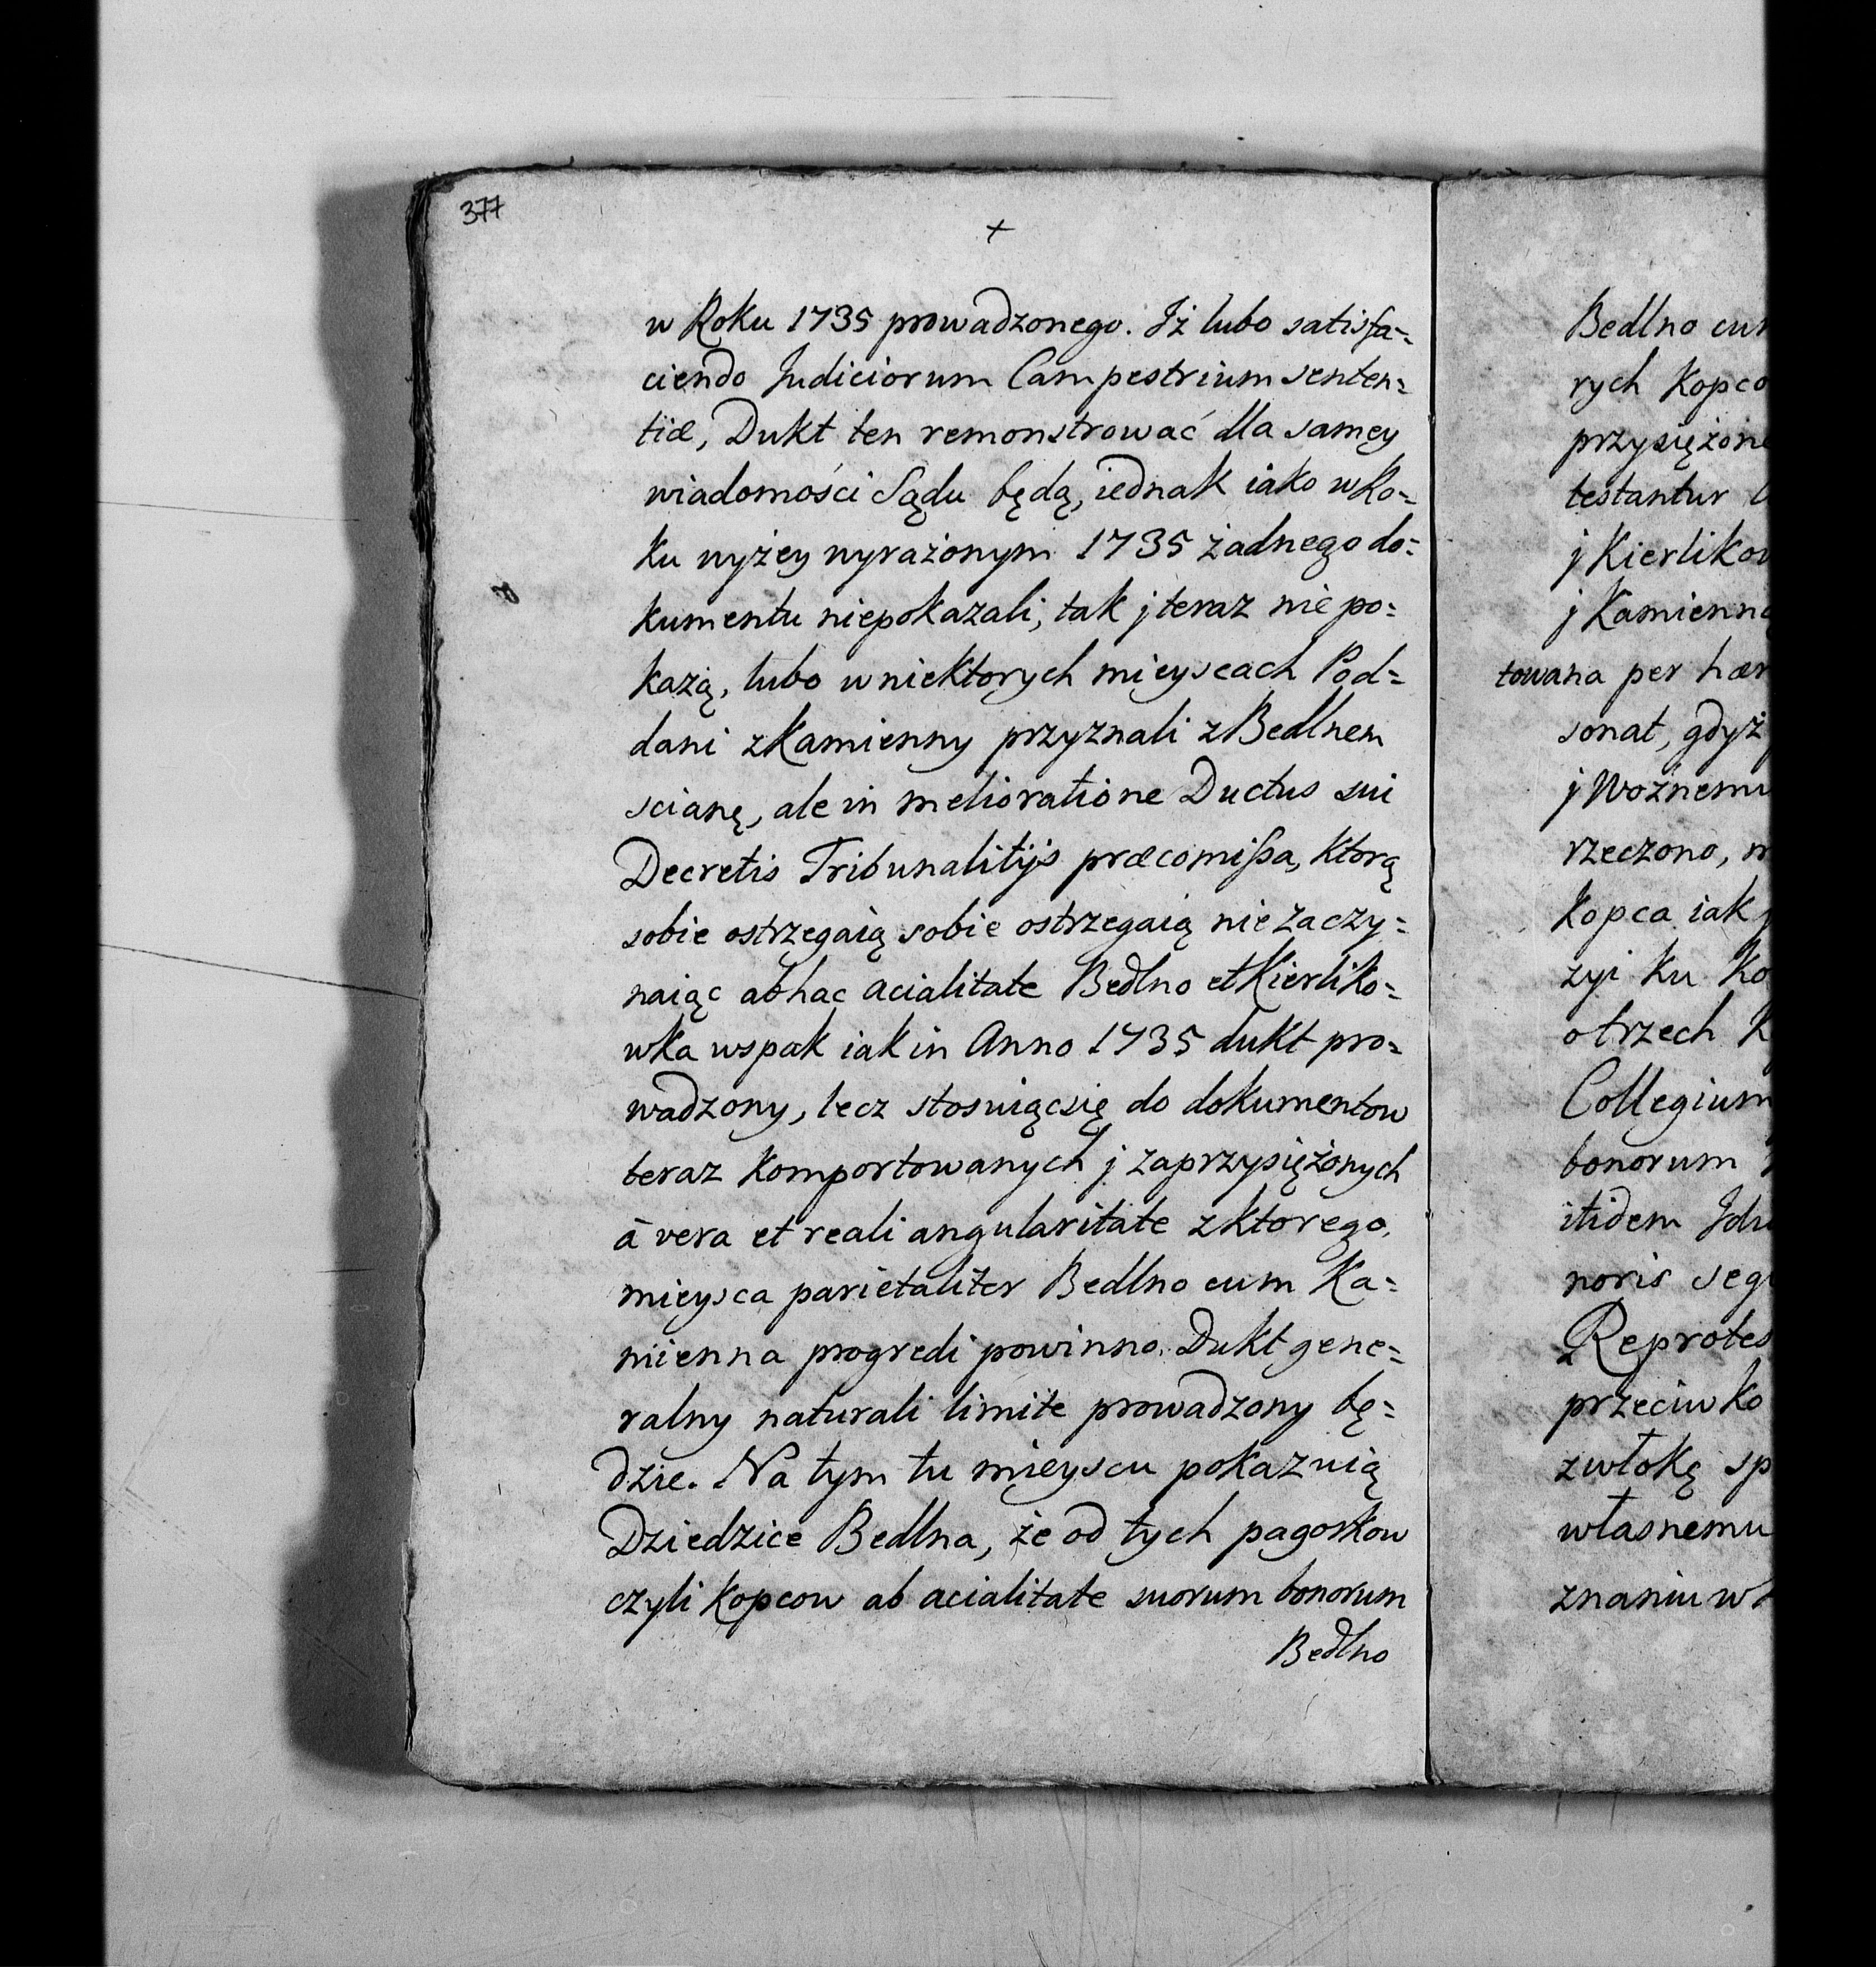 377
+
w Roku 1735 prowadzonego. Iż lubo satisfa=
ciendo Judiciorum Campestrium senten=
tiæ, Dukt ten remonstrować dla samey
wiadomości Sądu będą, iednak iako w Ro=
ku wyżey wyrażonym 1735 żadnego do=
kumentu niepokazali, tak j teraz nie po=
każą, lubo w niektorych mieyscach Pod=
dani z Kamienny przyznali z Bedlnem
scianę, ale in melioratione Ductus sui
Decretis Tribunalitijs præcomissa, ktorą
sobie ostrzegaią sobie ostrzegaią nie zaczy=
naiąc ab hac acialitate Bedlno et Kierliko=
wka wspak iak in Anno 1735 dukt pro=
wadzony, lecz stosuiąc się do dokumentow
teraz komportowanych j zaprzysiężonych
à vera et reali angularitate z ktorego
mieysca parietaliter Bedlno cum Ka=
mienna progredi powinno. Dukt gene=
ralny naturali limite prowadzony bę=
dzie. Na tym tu mieyscu pokazuią
Dziedzice Bedlna, że od tych pagorkow
czyli kopcow ab acialitate suorum bonorum
Bedlno
Bedlno cum
rych kopco
przysiężone
testantur
j Kierlikow
j Kamienną
towana per hær
sonat, gdyż
j Woznemu
rzeczono,
kopca iak
zyi ku Ko
o trzech K
Collegium
bonorum
itidem Jdu
noris seg
Reprotes
przeciwko
zwłokę sp
własnemu
znaniu w